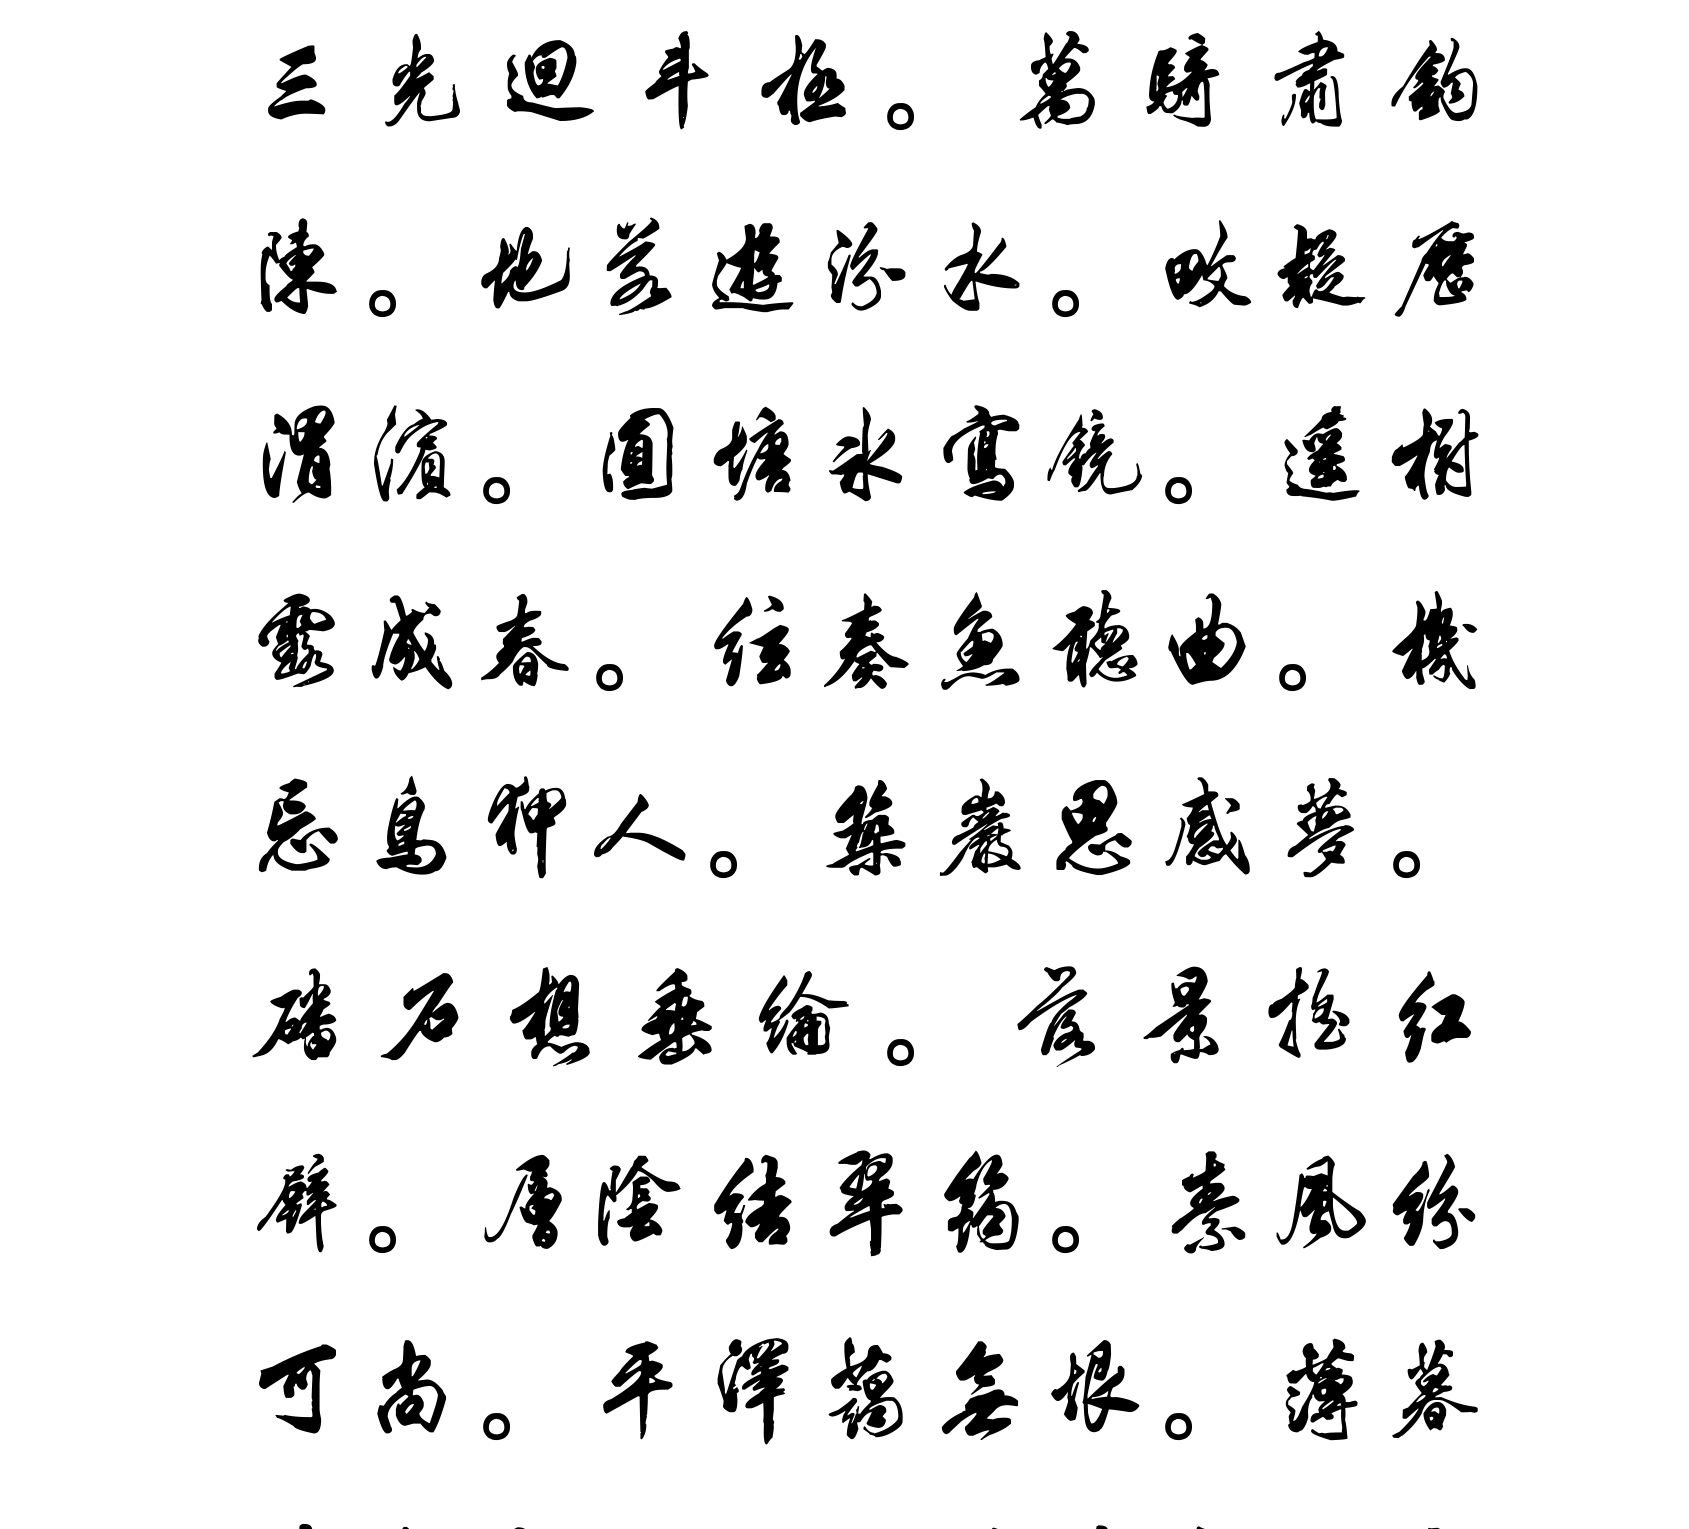 三光迴斗極。萬騎肅鈎
陳。地若遊汾水。畋疑歷
渭濱。圓塘冰寫鏡。遙樹
露成春。絃奏魚聽曲。機
忘鳥狎人。築巖思感夢。
磻石想垂綸。落景搖紅
壁。層陰結翠筠。素風紛
可尚。平澤藹無垠。薄暮